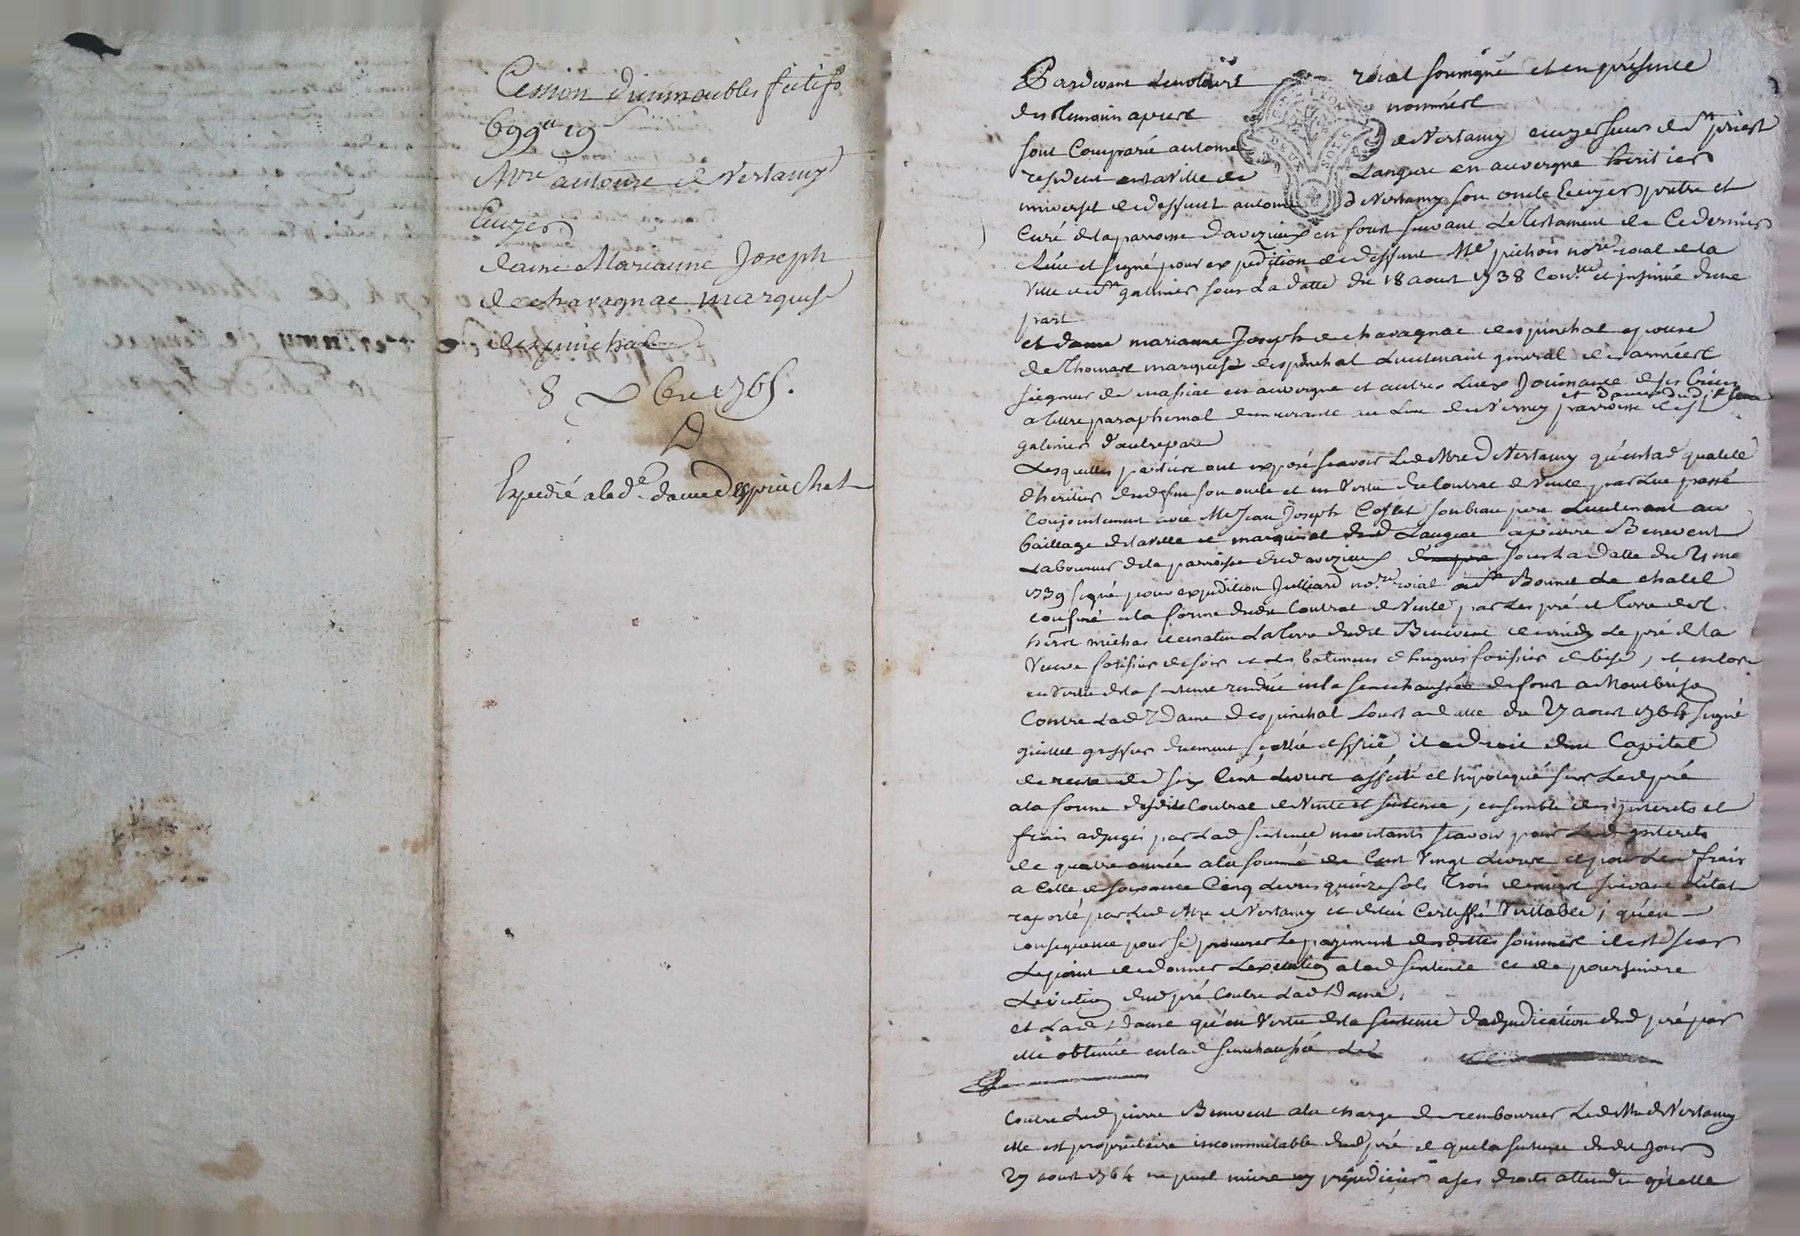 Cession d'immeubles fictifs
699ll 19s
Mre antoine de Vertamy
Ecuyer
dame Marianne Joseph
de chavagnac marquise
despinchal
8 bre 1765.
Expedié a lad.e dame despinchal
Pardevant Le notaire roial soussigné et en présence
des temoins apres nommés
sont Comparu antoine de Vertamy ecuyer sieur de St priest
resident en la Ville de Langeac en auvergne heritier
universel de deffunt antoine de Vertamy son oncle Ecuyer pretre et
Curé de la parroisse d'aveizieux en forest suivant Le Testament de Ce dernier
Reçu et signé pour expedition de deffunt Me pichon nore roial de la
Ville de St galmier sous La datte du 18 aoust 1738 et insinué d'une
part
et dame marianne Joseph de chavagnac despinchal epouse
de Thomas marquis despinchal Lieutenant general des armées
seigneur de massiac en auvergne et autres Lieux Jouissante de ses biens
a titre paraphernal demeurante au Lieu du Verney parroisse de St
galmier d'autre part
Lesquelles parties ont exposé scavoir Led Mre de Vertamy qu'en lad qualité
d'heritier dud feu son oncle et en Vertu du Contrat de Vente par Lui passé
Conjointement avec Me Jean Joseph son beau pere Lieutenant au
baillage de la Ville et marquisat dud Langeac a pierre Benevent
Laboureur de la parroisse dud aveizieux sous La datte du
1739 signé pour expedition Julliard nore roial
confiné a la forme dudit Contrat de Vente par Les pré et Terre des
hers michas de matin La Terre dudit Benevent de midy Le pré de la
Veuve de soir et Les batimens de bise, et encore
en Vertu de la sentence rendue en la senechaussée de forest a Montbrison
Contre Lad Dame despinchal sous La datte du 27 aoust 1764 signé
greffier duement scellée il a droit d'un Capital
de rente de six Cent Livres affecté et hipotequé sur Led pré
a la forme desdits Contrat de Vente et sentence, ensemble des interets et
frais adjugés par Lad sentence montants scavoir pour Les interets
de quatre année a la somme de Cent Vingt Livres et pour Les frais
a Celle de soixante Cinq Livres quinze sols Trois deniers suivant L'état
raporté par Led Mre de Vertamy et de lui Certiffié Veritable; qu'en
consequence pour se procurer Le payement desdittes sommes il est sur
Le point de donner L'execution a lad sentence et de poursuivre
L'eviction dud pré Contre Lad Dame,
et Lad Dame qu'en Vertu de la sentence d'adjudication dud pré par
elle obtenüe en lad senechaussée
Contre Led pierre Benevent a la charge de rembourser Led Mre de Vertamy
elle est proprietaire incommutable dud pré et que la sentence dudit Jour
27 aoust 1764 ne peut nuire ny préjudicier a ses droits attendu qu'elle